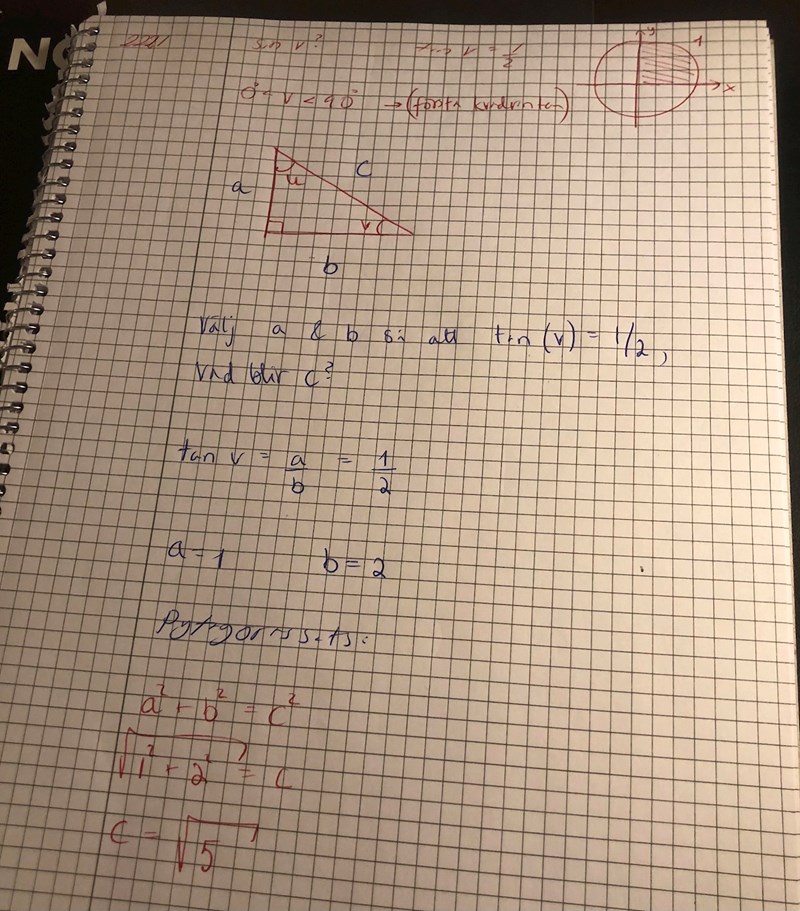 NO
2221
cos v?
tan v = 1/2
y
1
x
0° < v < 90° → (första kvadranten)
a
u
c
v
b
Välj a & b så att tan (v) = 1/2,
vad blir c?
tan v = a/b = 1/2
a = 1 b = 2
Pytagorassats:
a² + b² = c²
√1² + 2² = c
c = √5